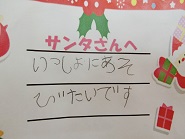 サンタさんへ
いっしょにあそ
びたいです